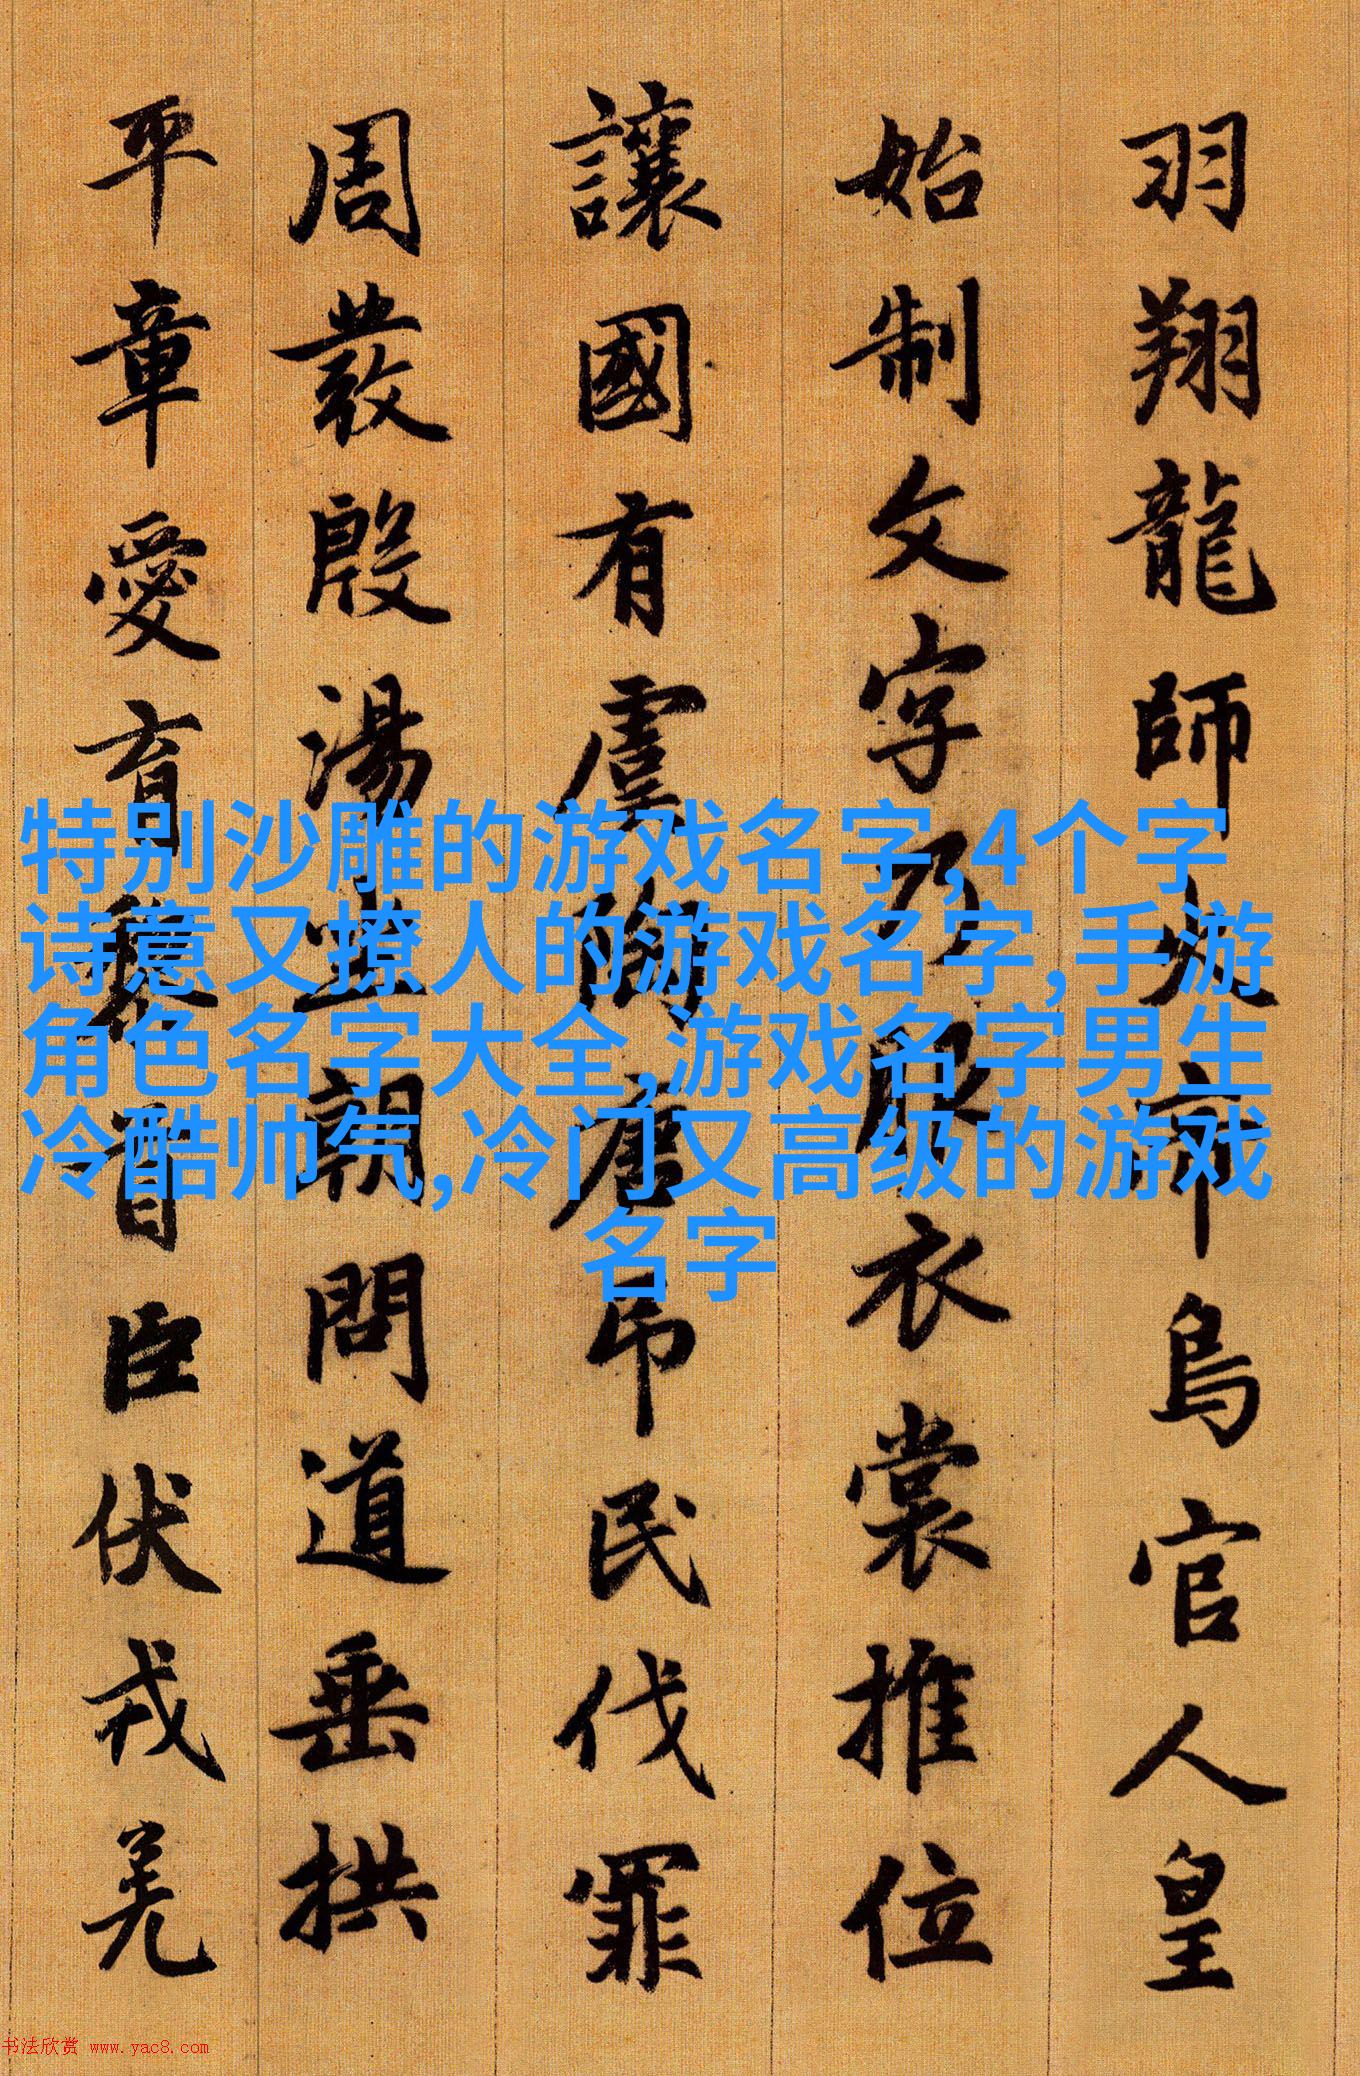 羽翔龍師火帝鳥官人皇
始制文字乃服衣裳推位
讓國有虞陶唐吊民伐罪
周發殷湯坐朝問道垂拱
平章愛育黎首臣伏戎羌
特别沙雕的游戏名字,4个字
诗意又撩人的游戏名字,手游
角色名字大全,游戏名字男生
冷酷帅气,冷门又高级的游戏
名字
书法欣赏 www.yac8.com